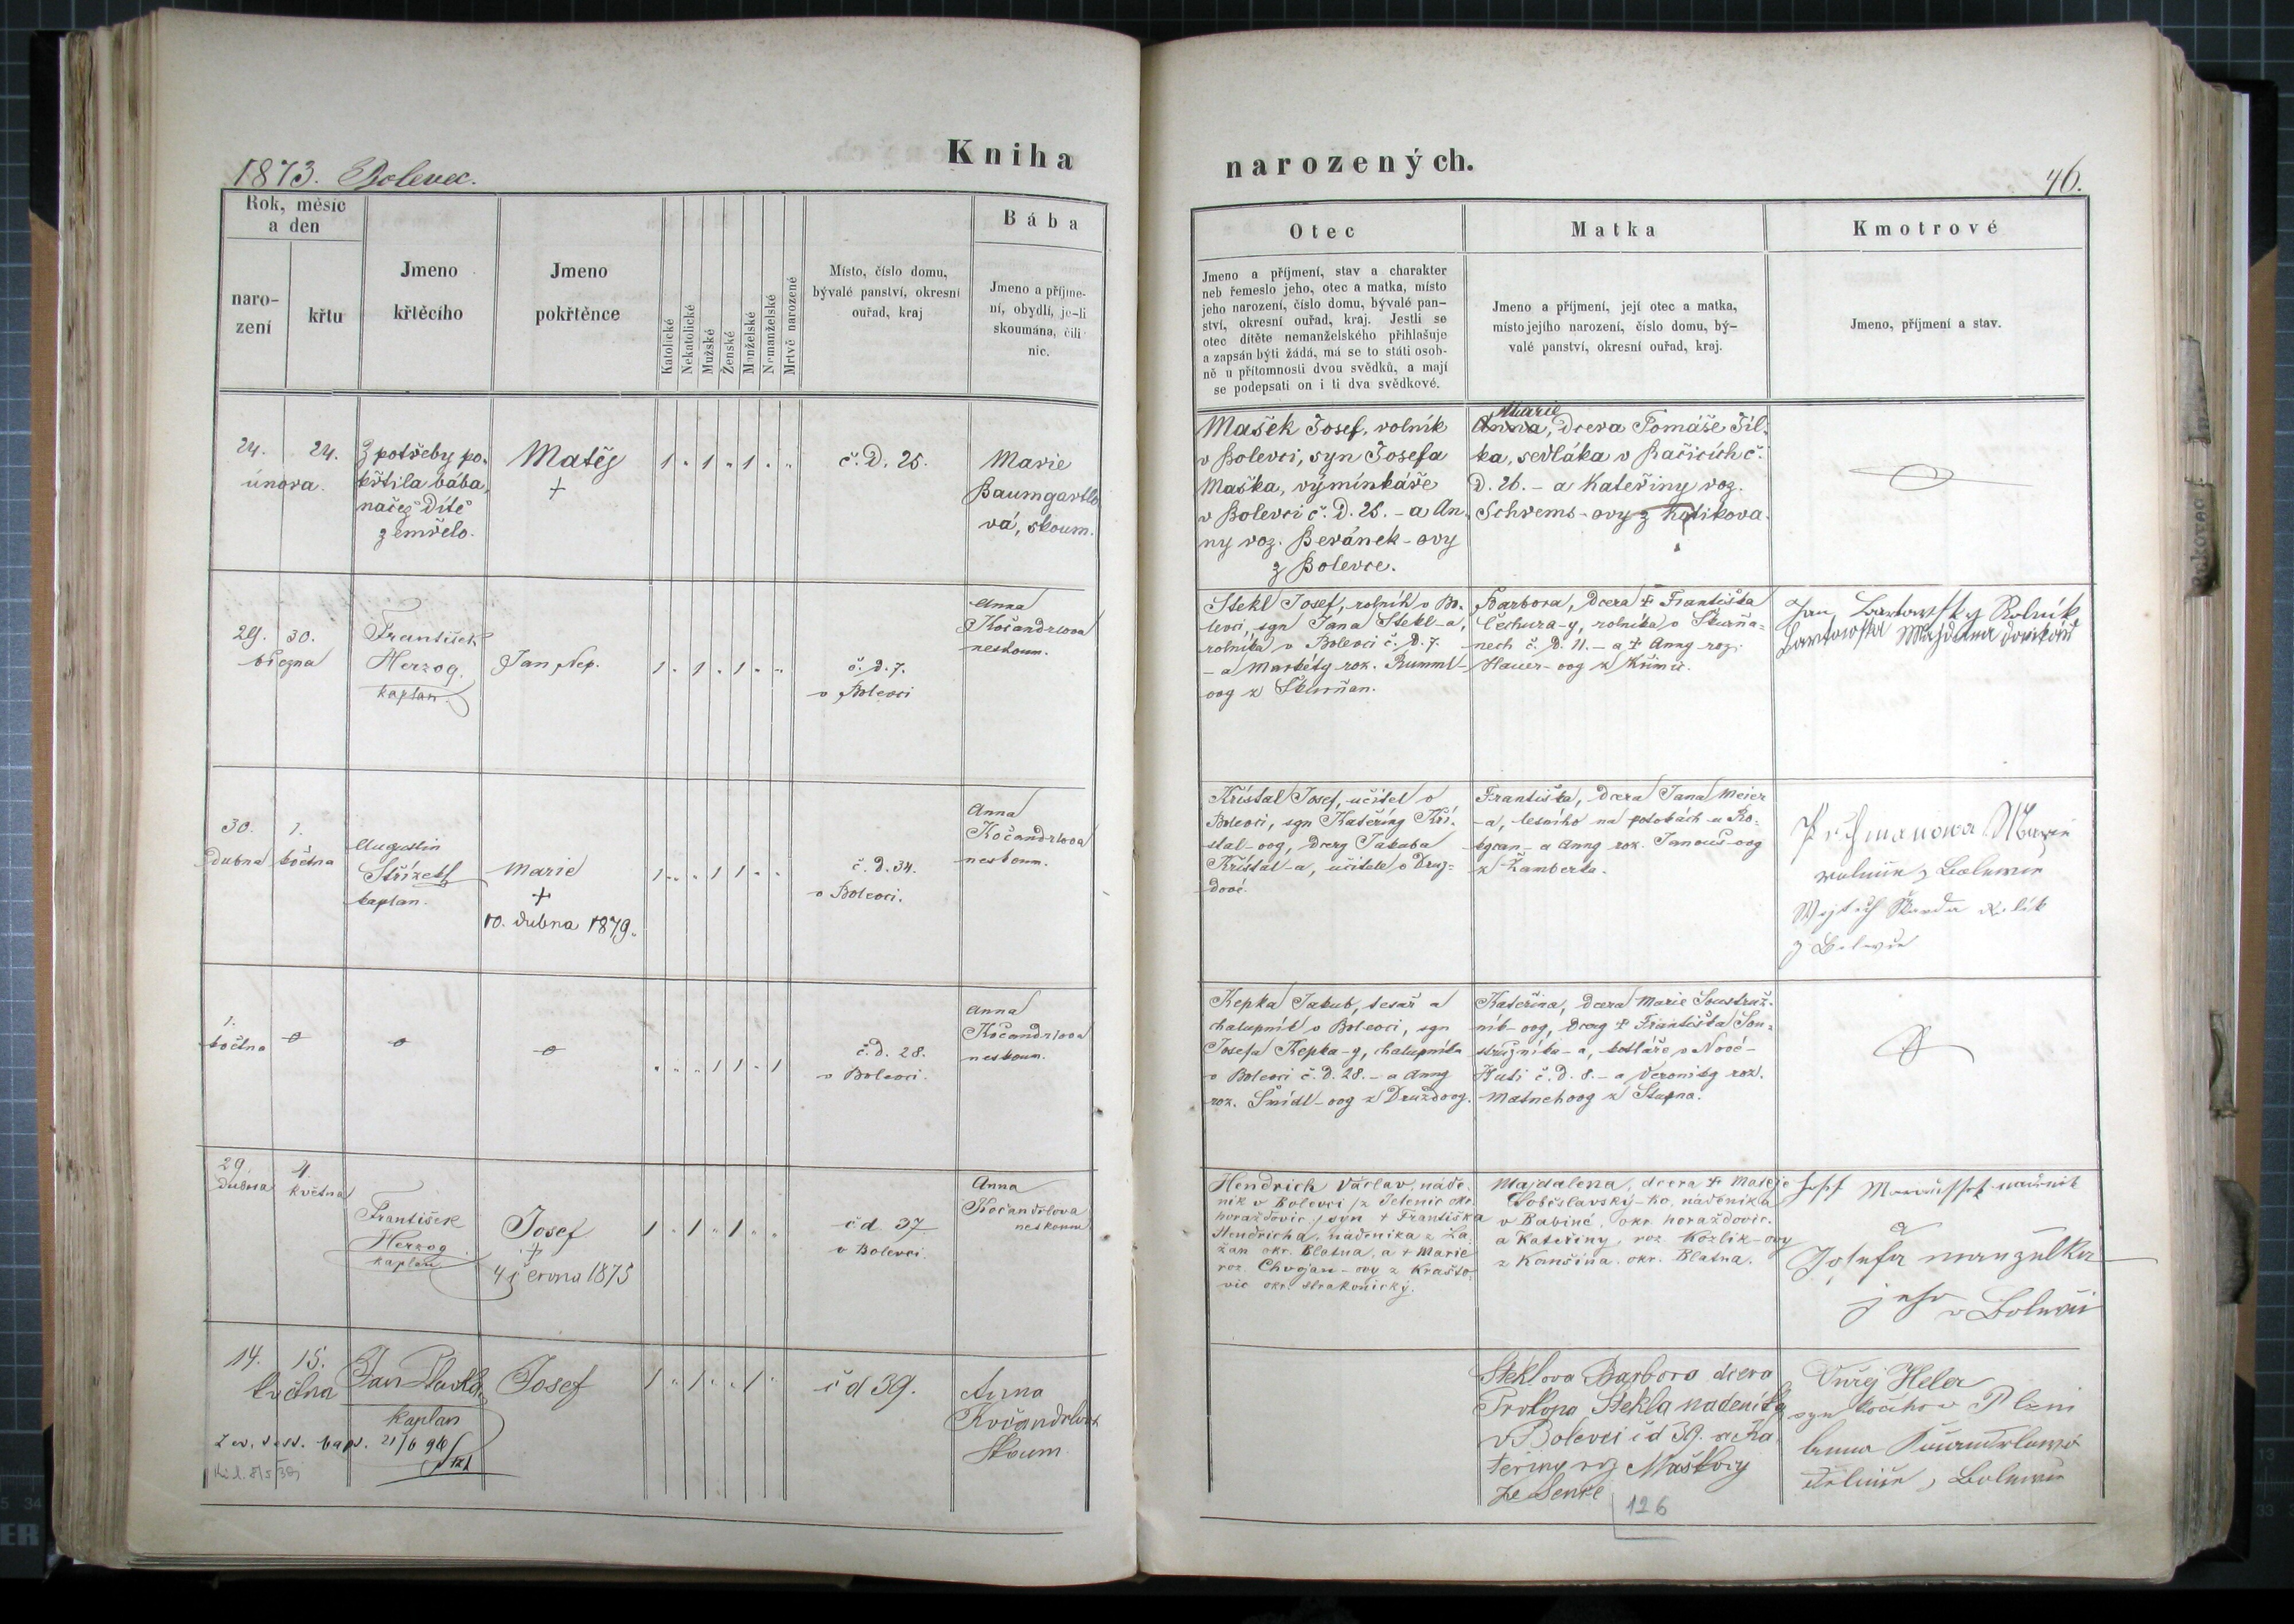 1873. Bolevec.
Kniha
narozených.
46.
Rok, měsíc
a den
naro-
zení
křtu
Jmeno
křtěcího
Jmeno
pokřtěnce
Katolické
Nekatolické
Mužské
Ženské
Manželské
Nemanželské
Mrtvě narozené
Místo, číslo domu,
bývalé panství, okresní
ouřad, kraj
Bába
Jmeno a příjme-
ní, obydlí, je-li
skoumána, čili
nic.
Otec
Jmeno a příjmení, stav a charakter
neb řemeslo jeho, otec a matka, místo
jeho narození, číslo domu, bývalé pan-
ství, okresní ouřad, kraj. Jestli se
otec dítěte nemanželského přihlašuje
a zapsán býti žádá, má se to státi osob-
ně u přítomnosti dvou svědků, a mají
se podepsati on i ti dva svědkové.
Matka
Jmeno a příjmení, její otec a matka,
místo jejího narození, číslo domu, bý-
valé panství, okresní ouřad, kraj.
Kmotrové
Jmeno, příjmení a stav.
24. 24.
února.
Z potřeby po-
křtila bába,
načež dítě
zemřelo.
Matěj
+
1 " 1 " 1 " "
č. D. 25.
Marie
Baumgartlo
vá, skoum.
Mašek Josef, rolník
v Bolevci, syn Josefa
Maška, výminkáře
v Bolevci č. D. 25. - a An.
ny roz. Beránek-ovy
z Bolevce.
Marie
Anna, dcera Tomáše Šil-
ka, sedláka v Bačicích č.
D. 26. - a Kateřiny roz.
Schrems-ovy z
29. 30.
března
František
Herzog.
kaplan.
Jan Nep.
1 " 1 " 1 " "
č. D. 7.
v Bolevci
Anna
Kočandrlova
neskoum.
Stekl Josef, rolník v Bo-
levci, syn Jana Stekl-a,
rolníka v Bolevci č. D. 7.
- a Markéty roz. Rumml-
ovy z Škurňan.
Barbora, dcera + Františka
Čechura-y, rolníka v Škurňa-
nech č. D. 11. - a + Anny roz.
Hauer-ovy z Křimic.
Jan Rolník
30. 1.
Dubna května
Augustin
Střízek
kaplan.
Marie
+
10. dubna 1879.
1 " " 1 1 " "
č. D. 34.
v Bolevci.
Anna
Kočandrlova
neskoum.
Křístal Josef, učitel v
Bolevci, syn Kateřiny Kří-
stal-ovy, dcery Jakuba
Křístal-a, učitele v Druz-
dově.
Františka, dcera Jana Meier
-a, lesního na potokách u Ro-
kycan - a Anny roz. Janouš-ovy
z Žamberka.
1.
května
" " " 1 1 " 1
č. D. 28.
v Bolevci.
Anna
Kočandrlova
neskoum.
Kepka Jakub, tesař a
chalupník v Bolevci, syn
Josefa Kepka-y, chalupníka
v Bolevci č. D. 28. - a Anny
roz. Šmídl-ovy z Druždovy.
Kateřina, dcera Marie Soustruž-
ník-ovy, dcery + Františka Sou-
stružníka-a, kotláře v Nové-
Huti č. D. 8. - a Veroniky roz.
Matneh ovy z Stupna.
29. 4.
dubna května
František
Herzog
kaplan
Josef
+
4 června 1873
1 " 1 " 1 " "
č d 37
v Bolevci.
Anna
Kočandrlova
neskoum
Hendrich Václav, náde-
ník v Bolevci /z Jetenic okr.
horažďovic./ syn + Františka
Hendricha, nádeníka z La-
žan okr. Blatna, a + Marie
roz. Chvojan-ovy z Krašto-
vic okr. strakonický.
Majdalena, dcera + Matěje
Soběslavský-ho, nádeníka
v Babině, okr. horažďovic.
a Kateřiny, roz. Kozlík-ovy
z Kančína. okr. Blatna.
a
Josefa manželka
jeho v Bolevci
14. 15.
května
Jan
kaplan
Josef
1 " 1 " " 1 "
č d 39.
Anna
Kočandrlova
Skoum.
Steklova Barbora dcera
Prokopa Stekla nadeníka
v Bolevci č d 39. a Ka
teřiny roz Maškovy
ze Sence
Juřej Heler
syn z Plzni
Anna Kočandrlová
z Bolevce
126